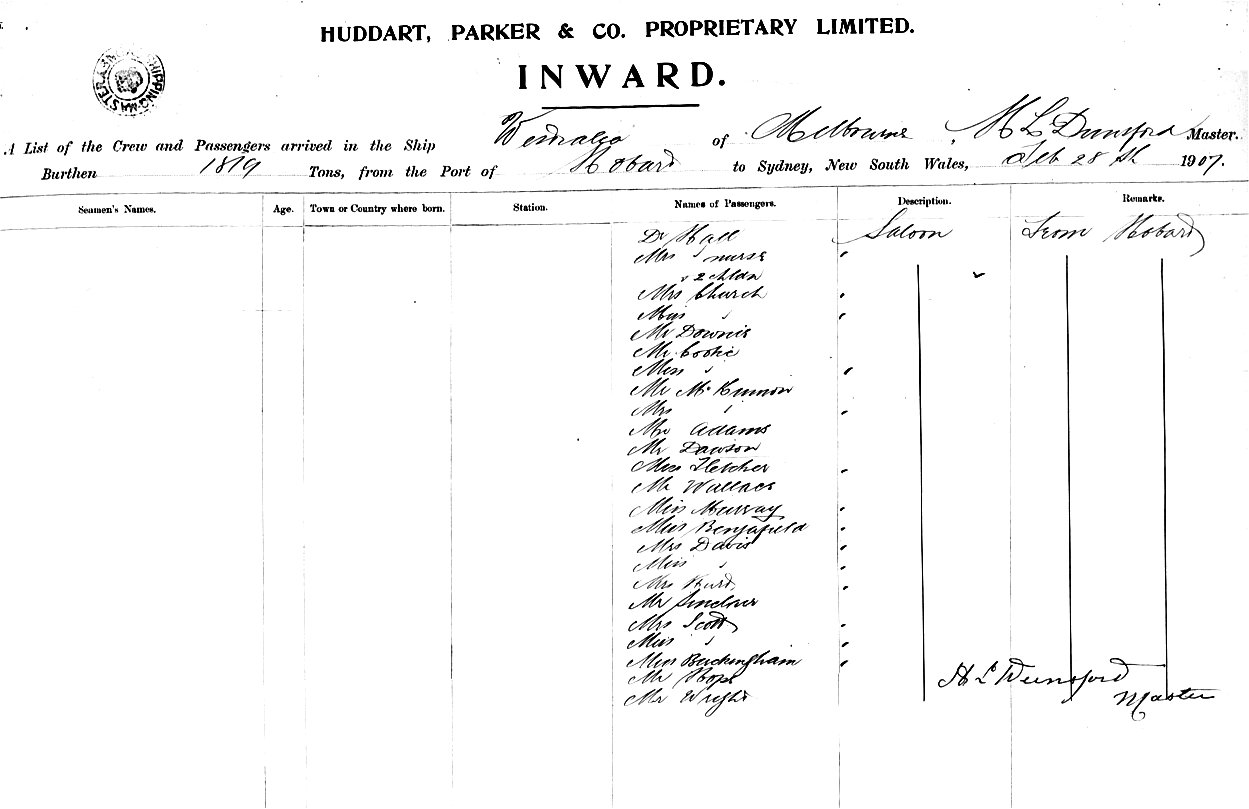 HUDDART, PARKER & CO. PROPRIETARY LIMITED.
INWARD.
SHIPPING MASTER
A List of the Crew and Passengers arrived in the Ship Westralia of Melbourne, H L Dunsford Master.
Burthen 1819 Tons, from the Port of Hobart to Sydney, New South Wales, Feb 28th 1907.
Seamen's Names. Age. Town or Country where born. Station. Names of Passengers. Description. Remarks.
Dr Hall Saloon From Hobart
Mrs " nurse "
& 2 Chldn
Mrs Church "
Miss " "
Mr Downie
Mr Cookie
Miss " "
Mr McKinnon
Mrs " "
Mr Adams
Mr Dawson
Miss Fletcher "
Mr Wallace
Miss Murray "
Miss Benjafield "
Mrs Davis "
Miss " "
Mrs Hurd "
Mr Sinclair
Mrs Scott "
Miss " "
Miss Buckingham "
Mr Hope
Mr Wright
H L Dunsford
Master